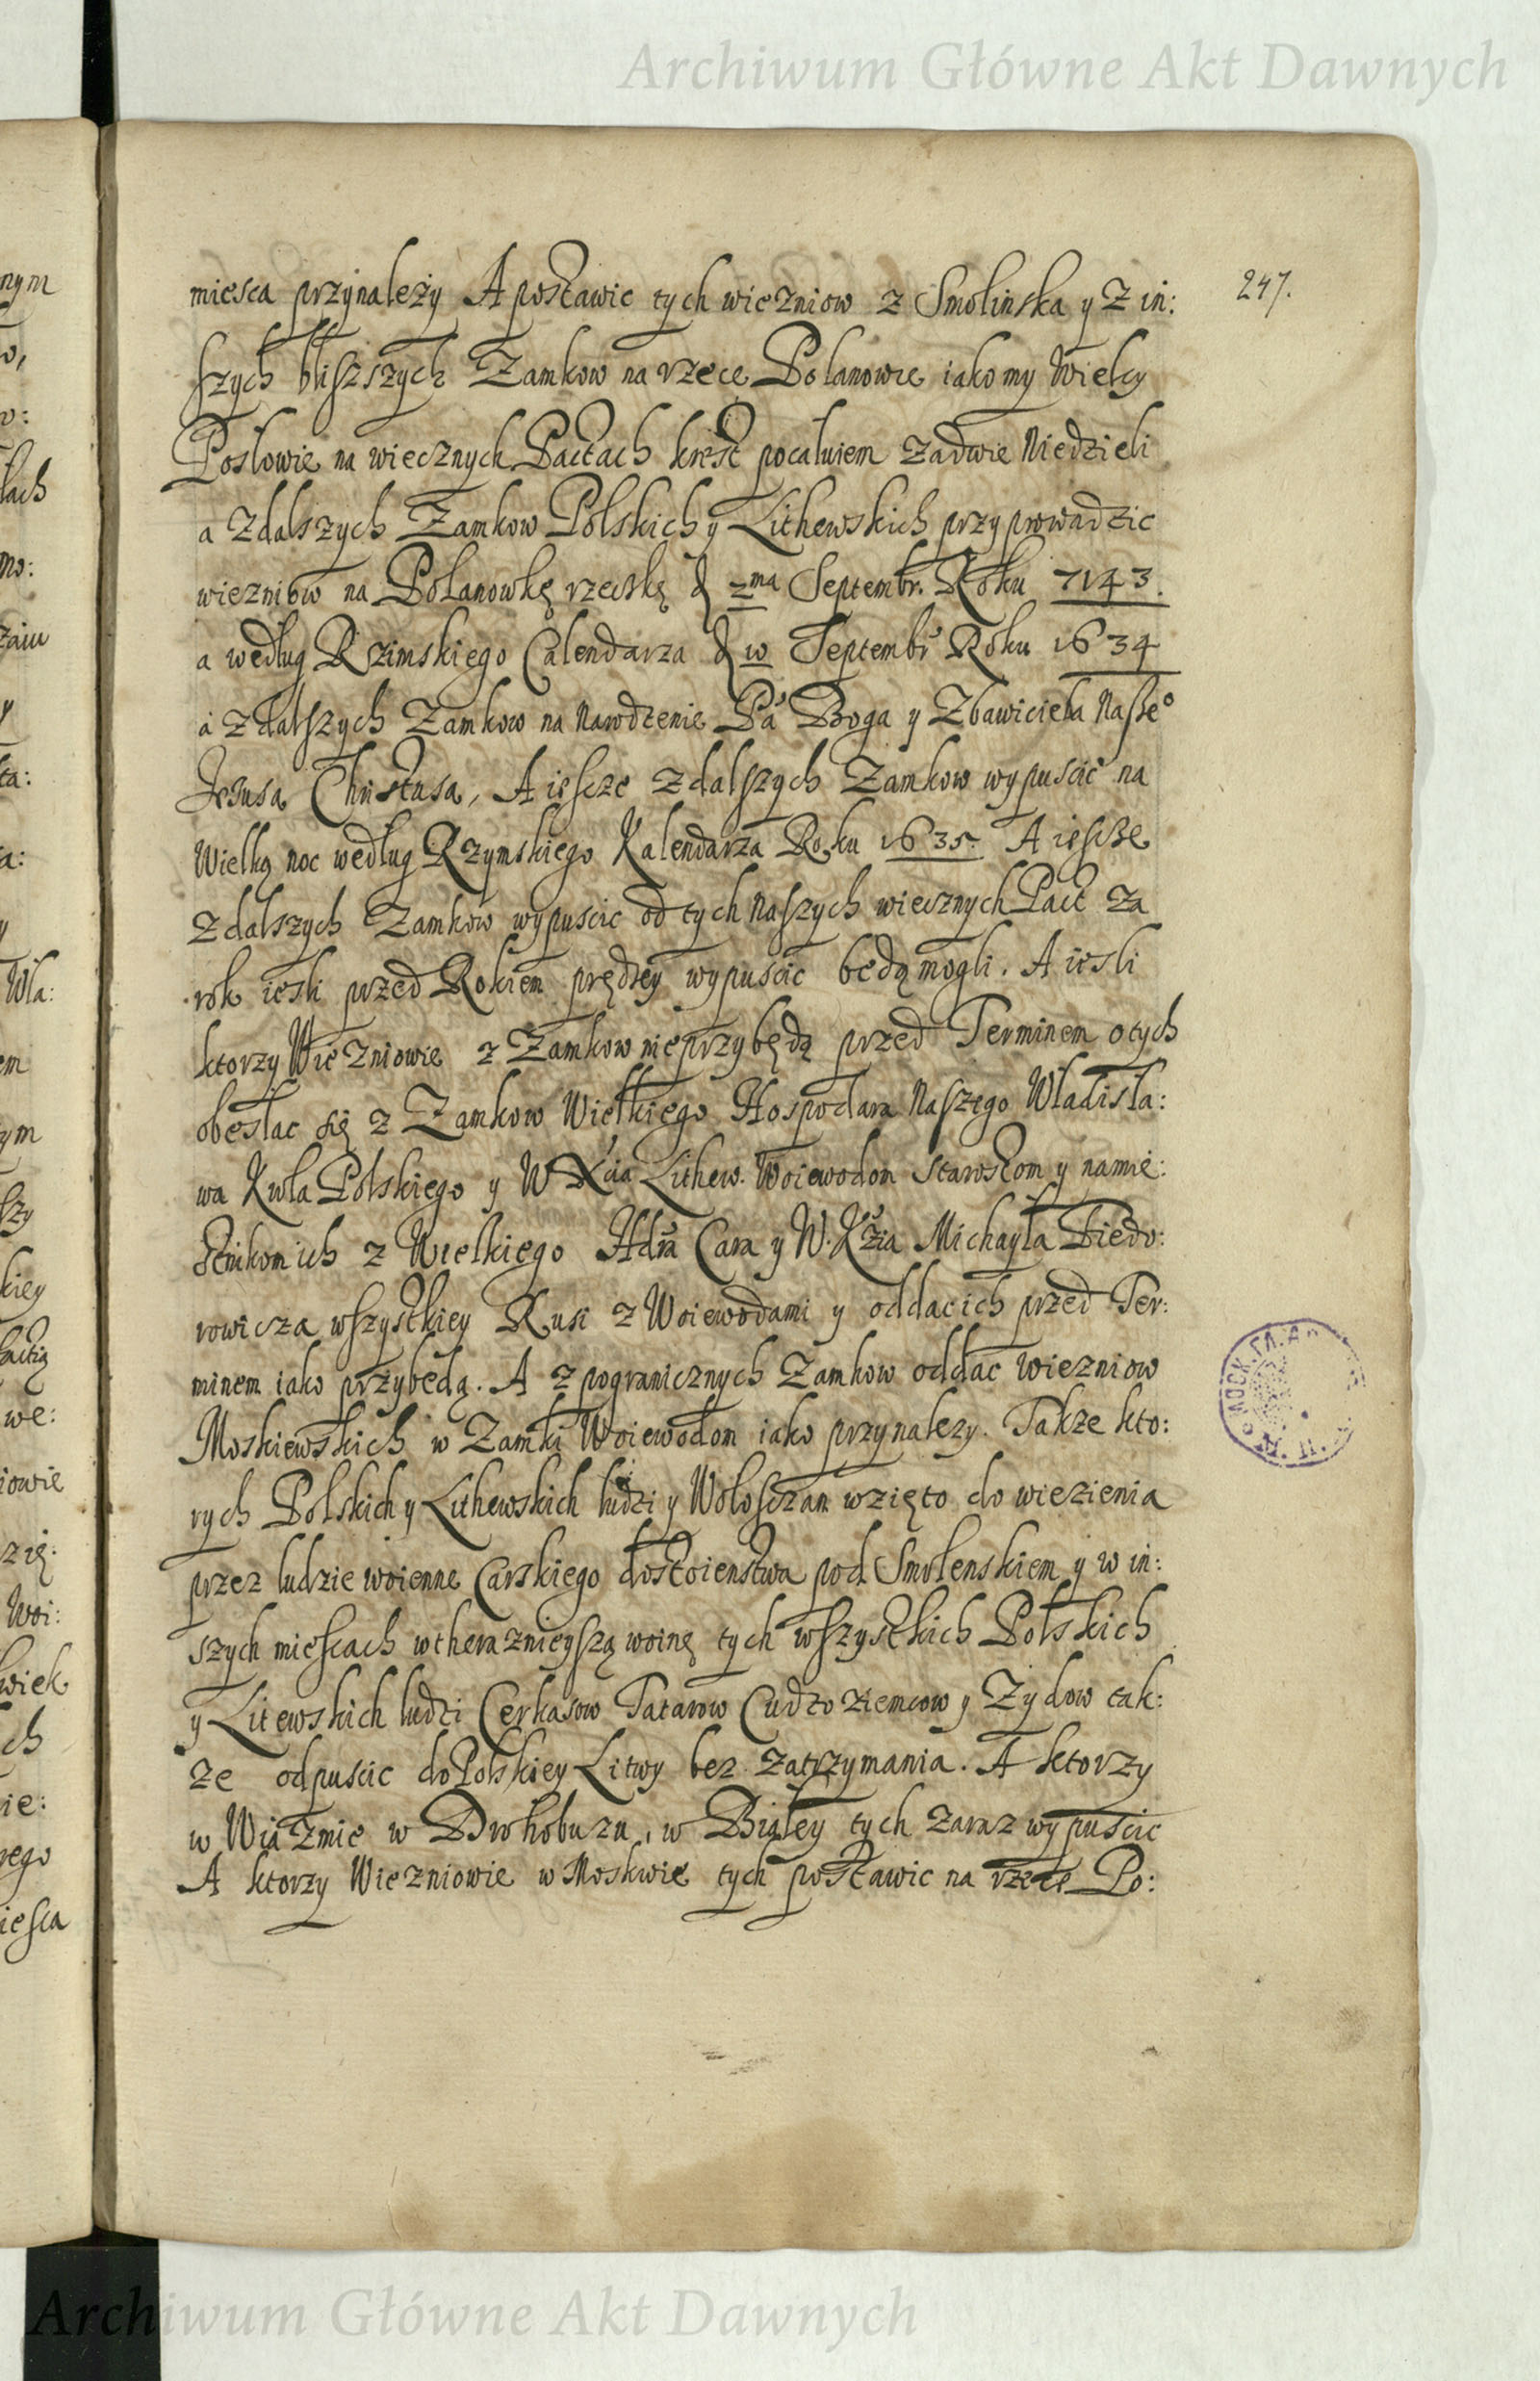 Archiwum Główne Akt Dawnych
247.
miesca przynależy A postawic tych wiezniow z Smolinska y Z in:
szych bliszszych Zamkow na rzece Polanowie iako my Wielcy
Posłowie na wiecznych Pactach krest pocałuiem Zadwie Niedzieli
a Zdalszych Zamkow Polskich y Lithewskich przyprowadzic
wiezniow na Polanowkę rzeczkę d 2ma Septembr. Roku 7143.
a według Rzimskiego Calendarza d w Septembr Roku 1634
a zdalszych Zamkow na Narodzenie Pa Boga y Zbawiciela Nasze°
Jezusa Christusa, A iescze zdalszych Zamkow wypuscic na
Wielką noc według Rzymskiego Kalendarza Roku 1635. A iescze
zdalszych Zamkow wypuscic od tych Naszych wiecznych Pact za
rok iesli przed Rokiem prędzey wypuscic będą mogli. A iesli
ktorzy Wiezniowie z Zamkow nie przybędą przed Terminem o tych
obesłac się z Zamkow Wielkiego Hospodara Naszego Władisła:
wa Krola Polskiego y W Xcia Lithew. Woiewodom Starostom y namie:
stnikom ich z Wielkiego Hdra Cara y W. Xzia Michayła Fiedo:
rowicza wszystkiey Rusi z Woiewodami y oddac ich przed Ter:
minem iako przybędą. A z pogranicznych Zamkow oddac wiezniow
Moskiewskich w Zamki Woiewodom iako przynalezy. Takze kto:
rych Polskich y Lithewskich ludzi y Wołosczan wzięto do wiezienia
przez ludzie woienne Carskiego dostoienstwa pod Smolenskiem y w in:
szych miescach w theraznieyszą woinę tych wszystkich Polskich
y Litewskich ludzi Cerkasow Tatarow Cudzoziemcow y Zydow tak:
ze odpuscic do Polskiey Litwy bez zatrzymania. A ktorzy
w Wiazmie w Drohobuzu, w Białey tych zaraz wypuscic
A ktorzy Wiezniowie w Moskwie tych postawic na rzece Po:
Archiwum Główne Akt Dawnych